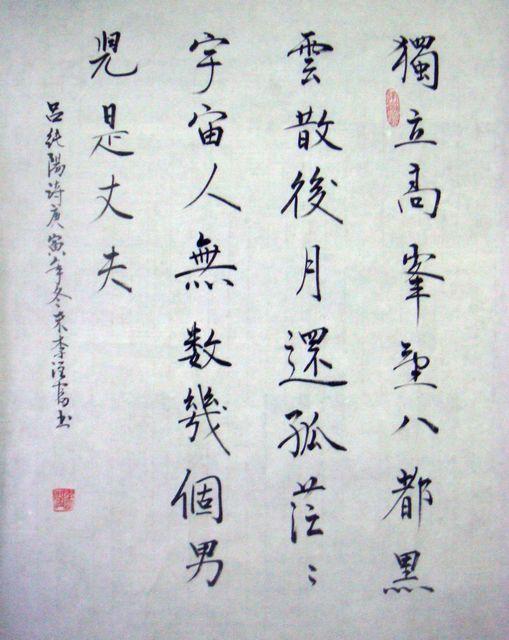 獨立高峯望八都黑
雲散後月還孤茫〻
宇宙人無数幾個男
児是丈夫
呂純陽詩庚寅年冬末李富书